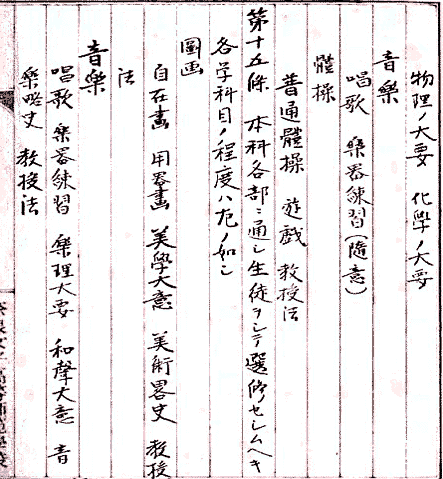 物理ノ大要　化學ノ大要
音樂
唱歌　樂器練習(隨意)
體操
普通體操　遊戲　教授法
第十五條　本科各部ニ通シ生徒ヲシテ選修セシムヘキ
各学科目ノ程度ハ左ノ如シ
圖画
自在畫　用器畫　美學大意　美術畧史　教授
法
音樂
唱歌　樂器練習　樂理大要　和聲大意　音
樂略史　教授法
奈良女子高等師範學校